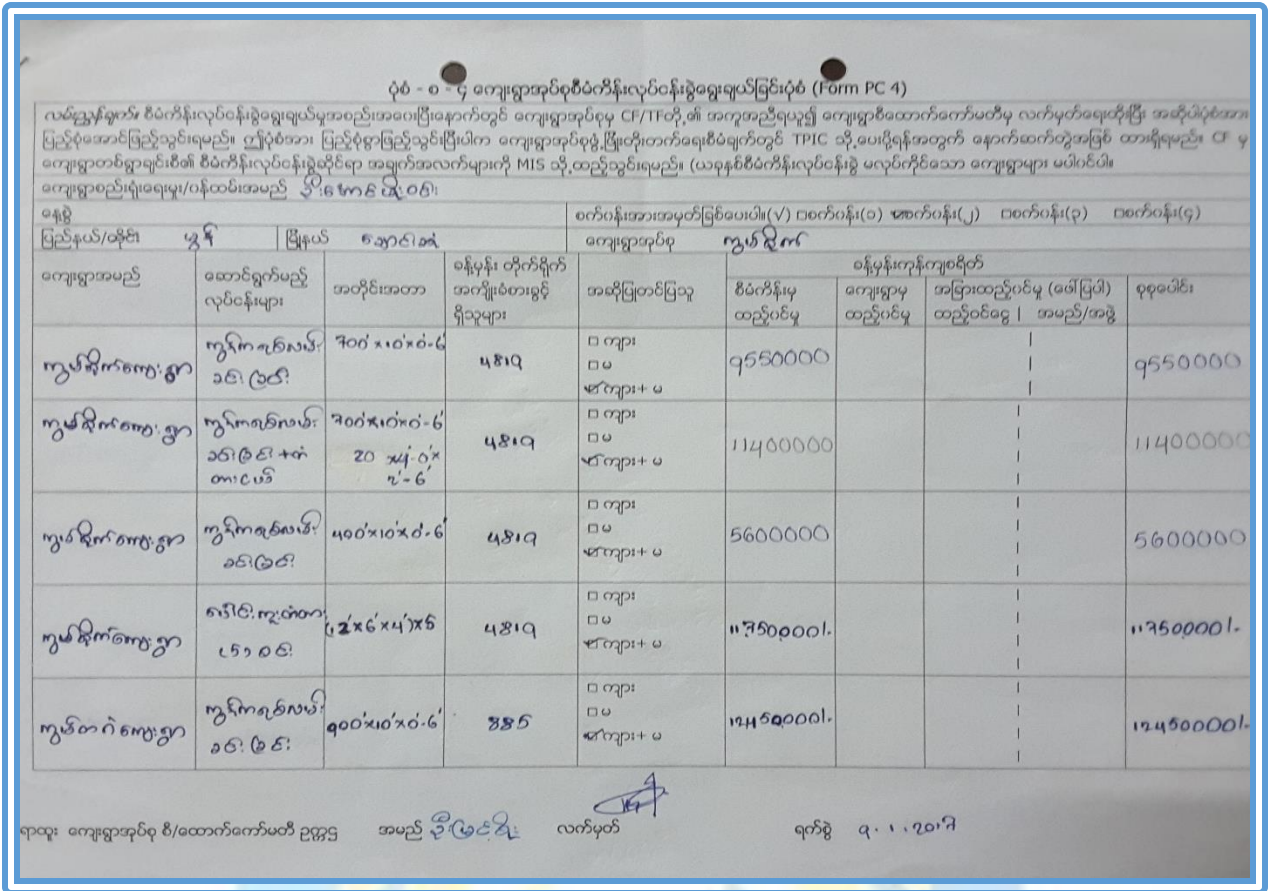 ပုံစံ - စ - ၄ ကျေးရွာအုပ်စုစီမံကိန်းလုပ်ငန်းခွဲရွေးချယ်ခြင်းပုံစံ (Form PC 4)
လမ်းညွှန်ချက်။ စီမံကိန်းလုပ်ငန်းခွဲရွေးချယ်မှုအစည်းအဝေးပြီးနောက်တွင် ကျေးရွာအုပ်စုမှ CF/TFတို့၏ အကူအညီရယူ၍ ကျေးရွာစီထောက်ကော်မတီမှ လက်မှတ်ရေးထိုးပြီး အဆိုပါပုံစံအား
ပြည့်စုံအောင်ဖြည့်သွင်းရမည်။ ဤပုံစံအား ပြည့်စုံစွာဖြည့်သွင်းပြီးပါက ကျေးရွာအုပ်စုဖွံ့ဖြိုးတိုးတက်ရေးစီမံချက်တွင် TPIC သို့ပေးပို့ရန်အတွက် နောက်ဆက်တွဲအဖြစ် ထားရှိရမည်။ CF မှ
ကျေးရွာတစ်ရွာချင်းစီ၏ စီမံကိန်းလုပ်ငန်းခွဲဆိုင်ရာ အချက်အလက်များကို MIS သို့ထည့်သွင်းရမည်။ (ယခုနှစ်စီမံကိန်းလုပ်ငန်းခွဲ မလုပ်ကိုင်သော ကျေးရွာများ မပါဝင်ပါ။
ကျေးရွာစည်းရုံးရေးမှူး/ဝန်ထမ်းအမည်
နေ့စွဲ စက်ဝန်းအားအမှတ်ခြစ်ပေးပါ။(√) □စက်ဝန်း(၁) ☑စက်ဝန်း(၂) □စက်ဝန်း(၃) □စက်ဝန်း(၄)
ပြည်နယ်/တိုင်း မွန် မြို့နယ် ချောင်းဆုံ ကျေးရွာအုပ်စု ကွမ်ရိုက်
ကျေးရွာအမည် ဆောင်ရွက်မည့် လုပ်ငန်းများ အတိုင်းအတာ ခန့်မှန်း တိုက်ရိုက် အကျိုးခံစားခွင့် ရှိသူများ အဆိုပြုတင်ပြသူ ခန့်မှန်းကုန်ကျစရိတ်
စီမံကိန်းမှ ထည့်ဝင်မှု ကျေးရွာမှ ထည့်ဝင်မှု အခြားထည့်ဝင်မှု (ဖော်ပြပါ) ထည့်ဝင်ငွေ | အမည်/အဖွဲ့ စုစုပေါင်း
ကွမ်ရိုက်ကျေးရွာ ကွန်ကရစ်လမ်း ခင်းခြင်း 700'x10'x0'-6" 4819 □ ကျား □ မ ☑ ကျား + မ 9550000 9550000
ကွမ်ရိုက်ကျေးရွာ ကွန်ကရစ်လမ်း ခင်းခြင်း+တံ တားငယ် 700'x10'x0'-6" 4819 □ ကျား □ မ ☑ ကျား + မ 11400000 11400000
ကွမ်ရိုက်ကျေးရွာ ကွန်ကရစ်လမ်း ခင်းခြင်း 400'x10'x0'-6" 4819 □ ကျား □ မ ☑ ကျား + မ 5600000 5600000
ကွမ်ရိုက်ကျေးရွာ (၅) စင်း (12'x6'x4')x5 4819 □ ကျား □ မ ☑ ကျား + မ 11750000/- 11750000/-
ကျေးရွာ ကွန်ကရစ်လမ်း ခင်းခြင်း 900'x10'x0'-6" 885 □ ကျား □ မ ☑ ကျား + မ 12450000/- 12450000/-
ရာထူး ကျေးရွာအုပ်စု စီ/ထောက်ကော်မတီ ဥက္ကဋ္ဌ အမည် ဦးမြင့်စိုး လက်မှတ် ရက်စွဲ ၉.၁.2017